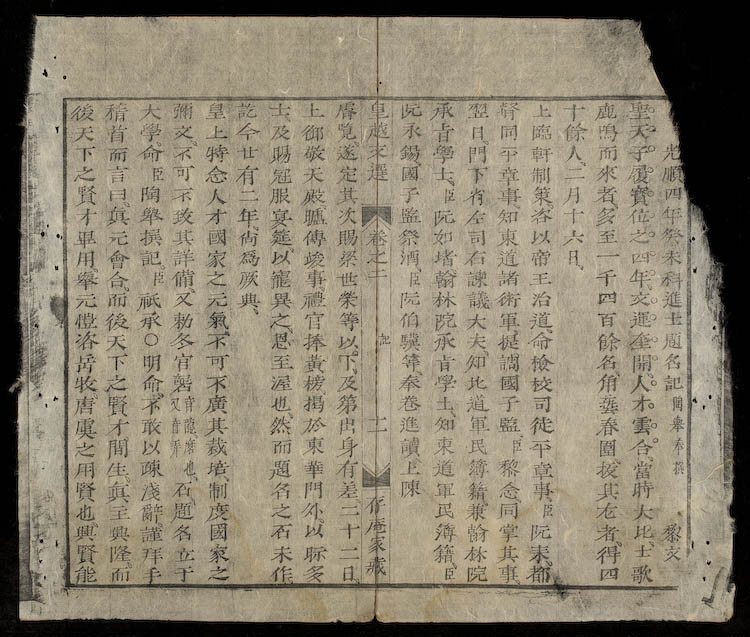 光順四年癸未科進士題名記 陶舉奉撰 黎文
聖天子履寶位之四年文運奎開人才雲合當時大比士歌
鹿鳴而來者多至一千四百餘名角藝春圍拔其尤者得四
十餘人二月十六日
上臨軒制策咨以帝王治道命檢校司徒平章事臣阮耒都
督同平章事知東道諸衛軍提調國子監臣黎念同掌其事
翌日門下省左司右諫議大夫知北道軍民簿籍兼翰林院
承旨學士臣阮如堵翰林院承旨學士知東道軍民簿籍臣
阮永錫國子監祭酒臣阮伯驥等奉卷進讀上陳
皇越文選 卷之二 記 十一 存庵家藏
睿覽遂定其次賜梁世榮等以下及第出身有差二十二日
上御敬天殿臚傳竣事禮官捧黃榜揭於東華門外以眎多
士及賜冠服宴筵以寵異之恩至渥也然而題名之石未作
訖今廿有二年尚爲厥典
皇上特念人才國家之元氣不可不廣其栽培制度國家之
彌文不可不致其詳備又勅冬官礱音龍磨也又音弄石題名立于
大學命臣陶舉撰記臣祗承○明命不敢以疎淺辭謹拜手
稽首而言曰眞元會合而後天下之賢才間生眞至興隆而
後天下之賢才畢用舉元愷咨岳牧唐虞之用賢也興賢能